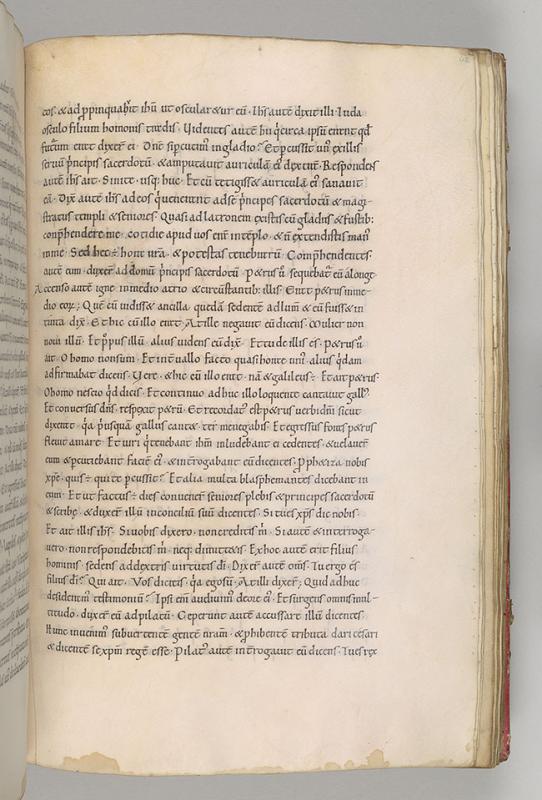 eos · & adp̄pinquauit ih̄u ut oscular&ur eū · Ih̄s autē dixit illi Iuda
osculo filium hominis tradis · Uidentes autē hii q̄ circa ipsū erant qd̄
futūrum erat dixer̄ ei · Dn̄e si p̄cutim̄ in gladio? Et p̄cussit un̄ ex illis
seruū p̄ncipis sacerdotū · & amputauit auriculā ei᾽ dexterā · Respondens
autē ih̄s ait · Sinite · usq; huc · Et cū t&igiss& auriculā ei᾽ sanauit
eā · Dix̄ autē ih̄s ad eos q̄ uenerant ad se p̄ncipes sacerdotū & magi-
stratus templi & seniores · Quasi ad latronem existis cū gladiis & fustib:
conp̄hendere me · cotidie apud uos erā in tēplo · & n̄ extendistis man᾽
in me · Sed hec ÷ hora ur̄a · & potestas tenebrarū · Comp̄hendentes
autē eum · duxer̄ ad domū p̄ncipis sacerdotū · P&rus ū᾽ sequebat᾽ eū a longe
Accenso autē igne in medio atrio & circūstantib: illis · Erat p&rus in me-
dio eor̄; Quē cū uidiss& ancilla quedā sedentē ad lum̄ & eū fuiss& in-
tuita dix̄ · Et hic cū illo erat · At ille negauit eū dicens · Mulier non
noui illū · Et p᾽ pus illū · alius uidens eū dix̄ · Et tu de illis es · P&rus ū᾽
ait · O homo non sum · Et int̄uallo facto quasi hore uni᾽ alius q̄dam
adfirmabat dicens · Vere · & hic cū illo erat · nā & galileus ÷ · Et ait p&rus·
O homo nescio qd̄ dicis · Et continuo adhuc illo loquente cantauit gall᾽·
Et conuersus dn̄s · respexit p&rū · Et recordat᾽ est p&rus uerbi dn̄i sicut
dixerat · q̄a p̄ usquā gallus cant& · ter me negabis · Et egressus foras p&rus
fleuit amare · Et uiri q̄ tenebant ih̄m inludebant ei cedentes · & uelauer̄
eum & p̄cutiebant faciē ei᾽ · & int̄rogabant eū dicentes · P̄ph&iza nobis
xp̄e · quis ÷ qui te p̄cussit? Et alia multa blasphemantes dicebant in
eum · Et ut factus ÷ dies conuener̄ seniores plebis & principes sacerdotū
& scribe · & duxer̄ illū in conciliū suū dicentes · Si tu es xp̄s dic nobis ·
Et ait illis ih̄s · Si uobis dixero · non credetis m̄ · Si autē & interroga-
uero · non respondebitis m̄ · neq; dimitt&is · Ex hoc autē erit filius
hominis · sedens ad dextris uirtutis dī · Dixer̄ autē oms̄ · Tu ergo es
filius dī? Qui ait · Vos dicitis · q̄a ego sū · At illi dixer̄; Quid adhuc
desideram᾽ testimoniū? Ipsi eni᾽ audiuim᾽ de ore ei᾽ · Et surgens omnis mul-
titudo · duxer̄ eū ad pilatū · Ceperunt autē accusare illū dicentes ·
Hunc inuenim᾽ subuertentē gentē nr̄am · & phibentē tributa dari cesari
& dicentē se xp̄m regē esse · Pilat᾽ autē int̄rogauit eū dicens · Tu es rex